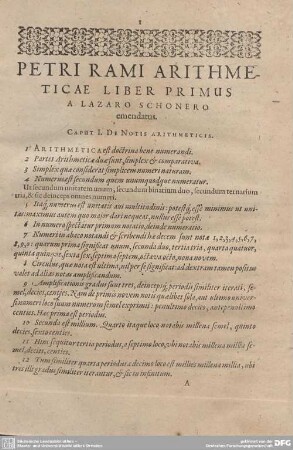 1
PETRI RAMI ARITHME-
TICAE LIBER PRIMUS
A LAZARO SCHONERO
emendatus.
CAPUT I. DE NOTIS ARITHMETICIS.
1 ARITHMETICA est doctrina bene numerandi.
2 Partes Arithmeticæ duæ sunt, simplex & comparativa.
3 Simplex quæ considerat simplicem numeri naturam.
4 Numerus est secundum quem unumquodque numeratur.
Ut secundum unitatem unum, secundum binarium duo, secundum ternarium
tria, & sic deinceps omnes numeri.
5 Itaq; numerus est unitatis aut multitudinis: potestq́; esse minimus ut uni-
tas: maximus autem quo major dari nequeat, nullus esse potest.
6 In numero spectatur primum notatio, deinde numeratio.
7 Numeri in abaco notandi & scribendi hæ decem sunt notæ 1,2,3,4,5,6,7,
8,9,0: quarum prima significat unum, secunda duo, tertia tria, quarta quatuor,
quinta quinque, sexta sex, septima septem, octava octo, nona novem.
8 Circulus, quæ nota est ultima, nil per se significat: ad dextram tamen positus
valet ad alias notas amplificandum.
9 Amplificationis gradus sunt tres, deinceps periodis similiter iterati,
semel, decies, centies. Nam de primis novem notis qualibet sola, aut ultimo
numeri loco sumitur semel: penultimo decies, antepenultimo
centies. Hæc prima est periodus.
10 Secunda est millium. Quarto itaque loco nota hîc millena semel, quinto
decies, sexto centies.
11 Hinc sequitur tertia periodus, a septimo loco, ubi nota hîc millies millia se-
mel, decies, centies.
12 Tum similiter quarta periodus a decimo loco est millies millena millia, ubi
tres illi gradus similiter iterantur, & sic in infinitum.
A
DFG